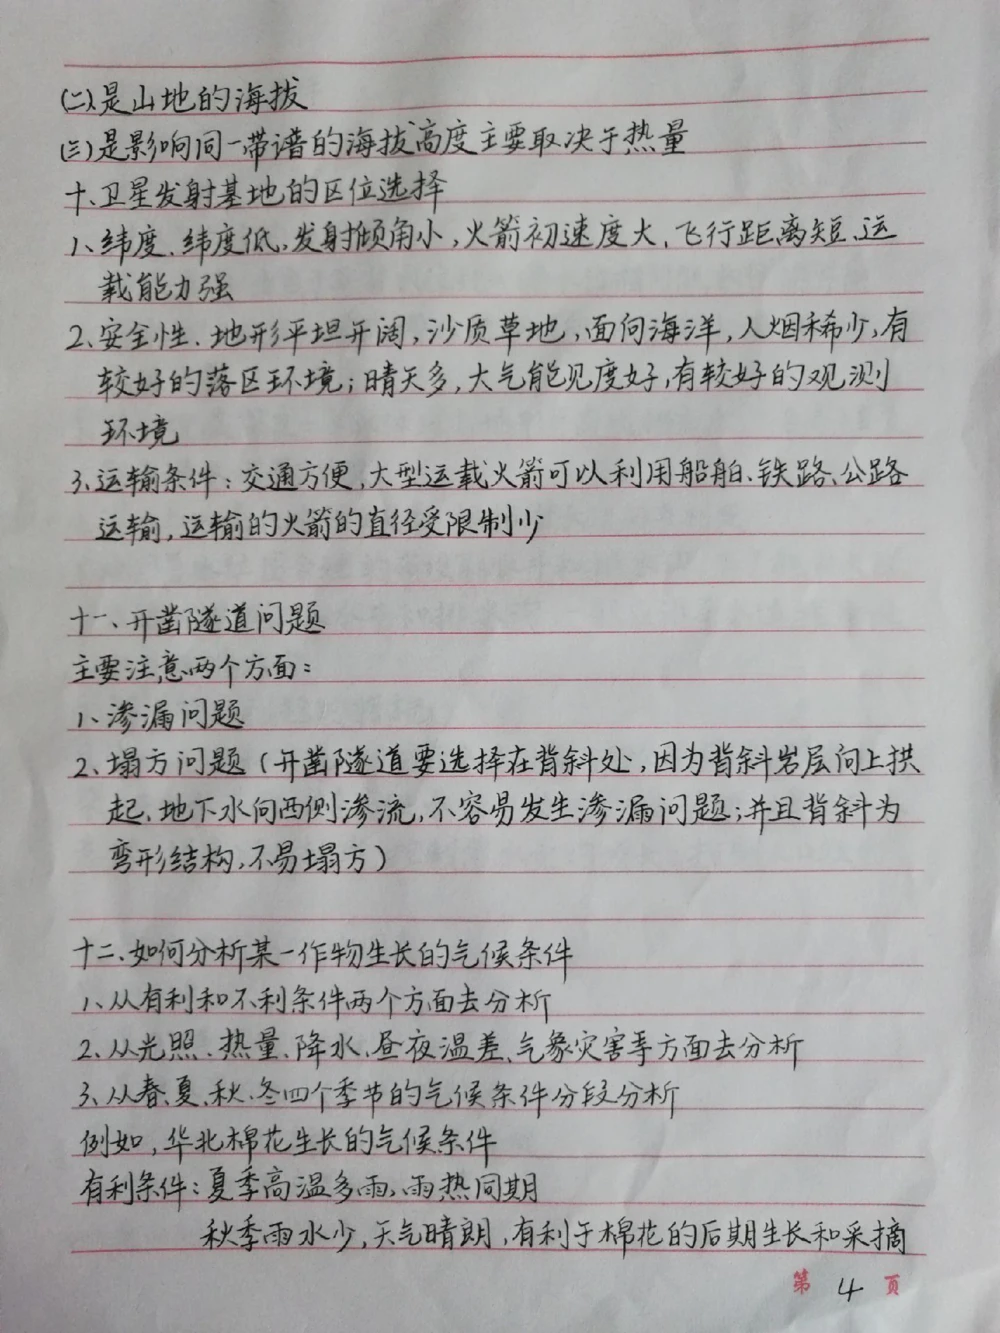 (二)、是山地的海拔
(三)是影响同一带谱的海拔高度主要取决于热量
十、卫星发射基地的区位选择
1、纬度、纬度低,发射倾角小,火箭初速度大、飞行距离短、运
载能力强
2、安全性、地形平坦开阔,沙质草地,面向海洋,人烟稀少,有
较好的落区环境;晴天多,大气能见度好,有较好的观测
环境
3、运输条件:交通方便,大型运载火箭可以利用船舶、铁路、公路
运输,运输的火箭的直径受限制少
十一、开凿隧道问题
主要注意两个方面:
1、渗漏问题
2、塌方问题(开凿隧道要选择在背斜处,因为背斜岩层向上拱
起,地下水向两侧渗流,不容易发生渗漏问题;并且背斜为
弯形结构,不易塌方)
十二、如何分析某一作物生长的气候条件
1、从有利和不利条件两个方面去分析
2、从光照、热量、降水、昼夜温差、气象灾害等方面去分析
3、从春、夏、秋、冬四个季节的气候条件分段分析
例如,华北棉花生长的气候条件
有利条件:夏季高温多雨,雨热同期
秋季雨水少,天气晴朗,有利于棉花的后期生长和采摘
第 4 页